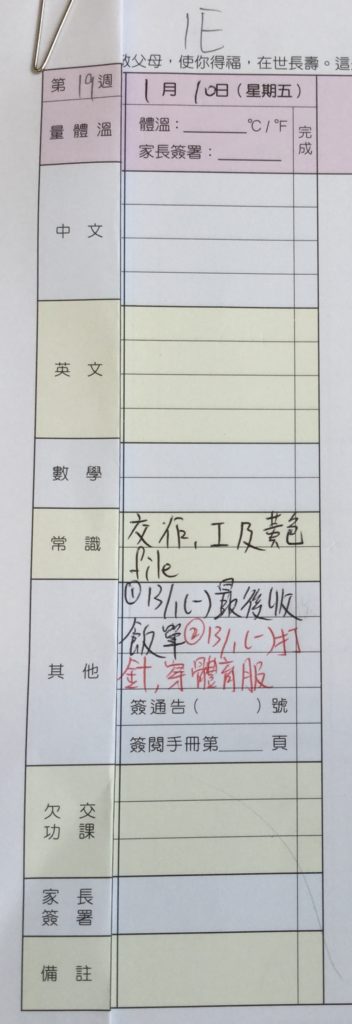 1E
敬父母，使你得福，在世長壽。這
第 19 週 1 月 10 日 (星期五)
量體溫 體溫：______ °C/°F 完成
家長簽署：______
中文
英文
數學
常識 交作, 工及黃色
file
其他 ① 13/1 (一) 最後收
飯單 ② 13/1 (一) 打
針, 穿體育服
簽通告 ( ) 號
簽閱手冊第____ 頁
欠交
功課
家長
簽署
備註